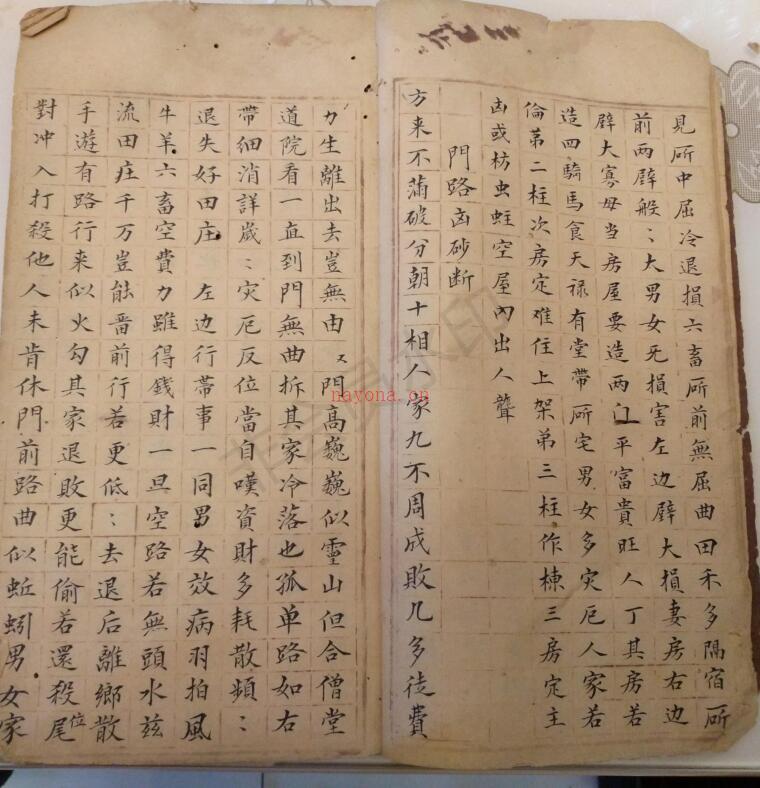 見所中屈冷退損六畜所前無屈曲田禾多隔宿所
前两壁般：大男女死損害左边壁大損妻房右边
壁大寡母当房屋要造两门平富貴旺人丁其房若
造四騎馬食天禄有堂帶所宅男女多灾厄人家若
倫第二柱次房定难住上架弟三柱作棟三房定主
凶或枋虫蛀空屋內出人聾
門路凶砂断
方来不蒲破分朝十相人家九不周成敗几多徒費
力生離出去豈無由又門高巍巍似靈山但合僧堂
道院看一直到門無曲折其家冷落也孤单路如右
帶细消詳歲：灾厄反位當自嘆資財多耗散頻：
退失好田庄左边行帯事一同男女效病羽拍風
牛羊六畜空費力雖得錢財一旦空路若無頭水兹
流田庄千万豈能畨前行若更低：去退后離鄉散
手遊有路行来似火勾其家退敗更能偷若還殺位尾
對冲入打殺他人未肯休門前路曲似蚯蚓男女家
nayona.cn